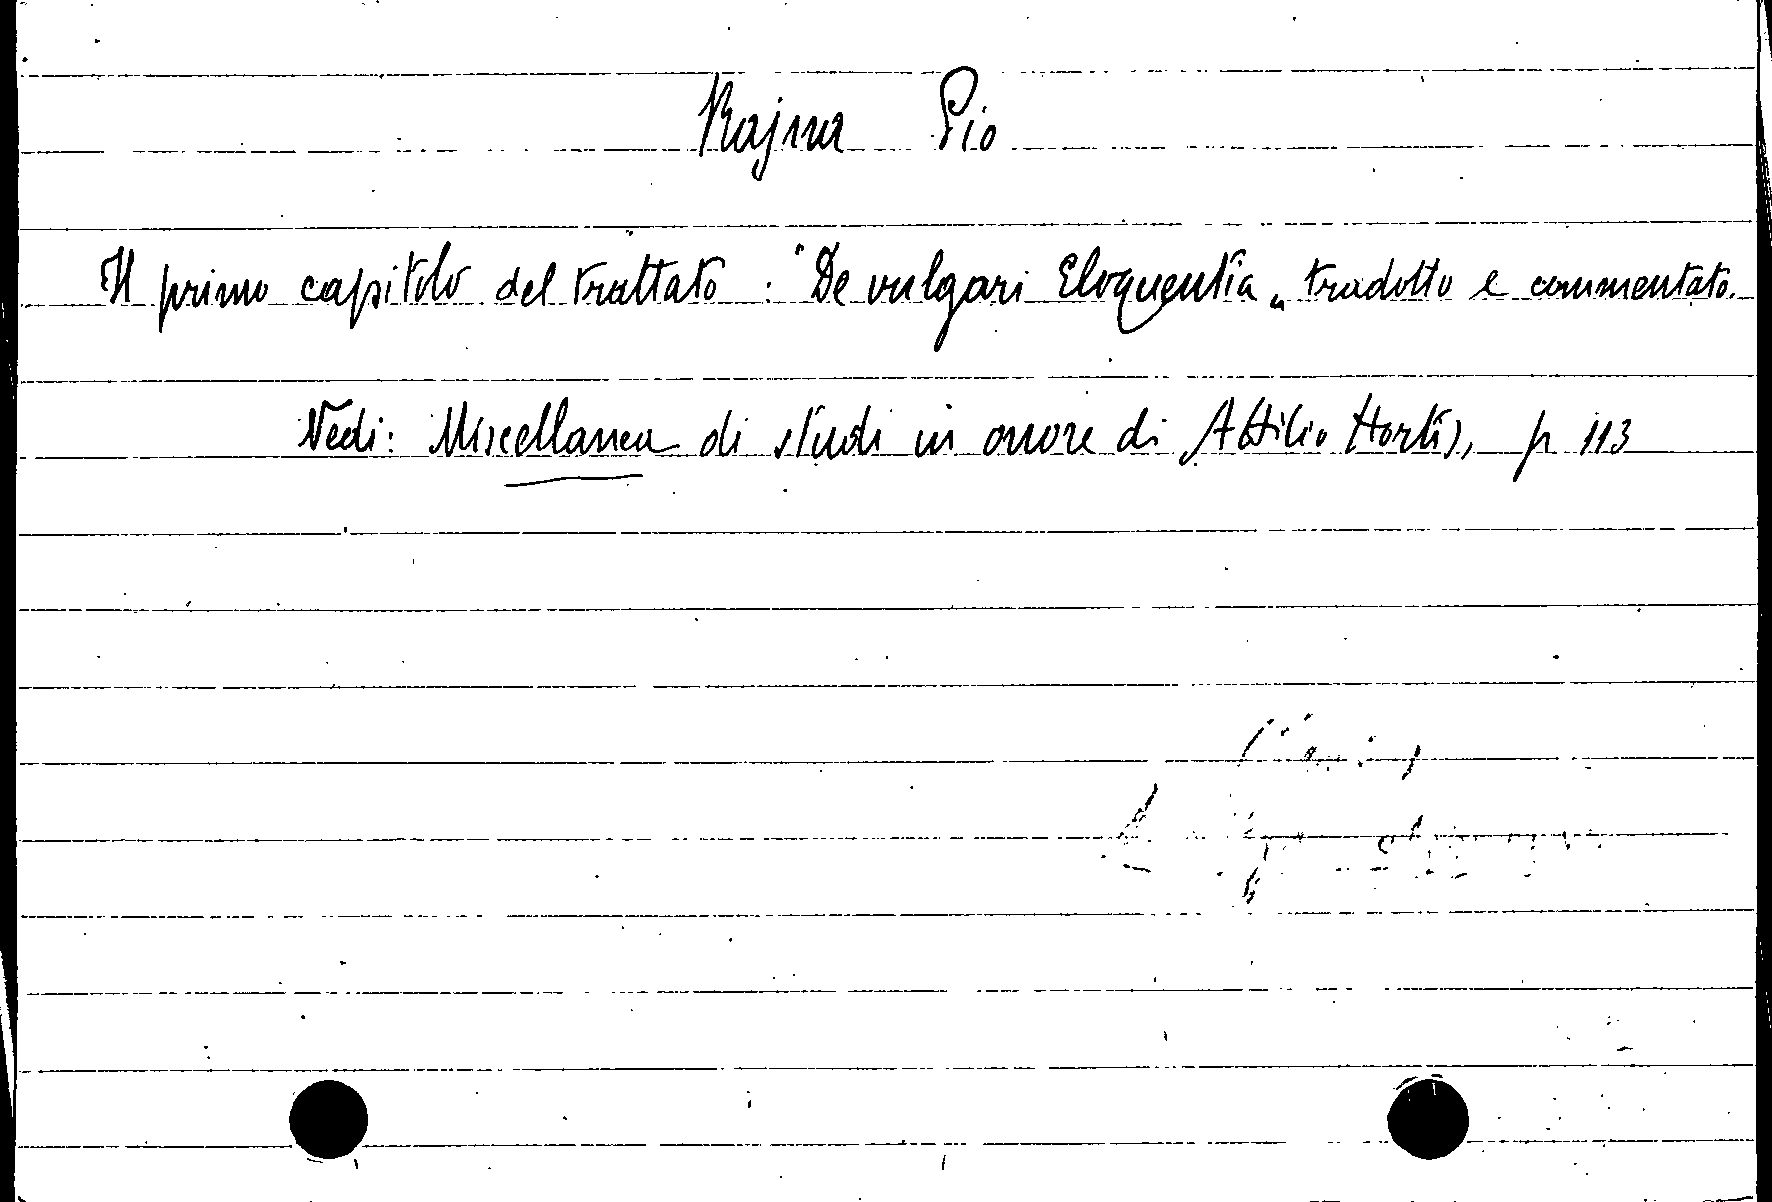 Rajna Pio
Il primo capitolo del trattato : "De vulgari Eloquentia„ tradotto e commentato.
Vedi: Miscellanea di studi in onore di Attilio Hortis, p 113